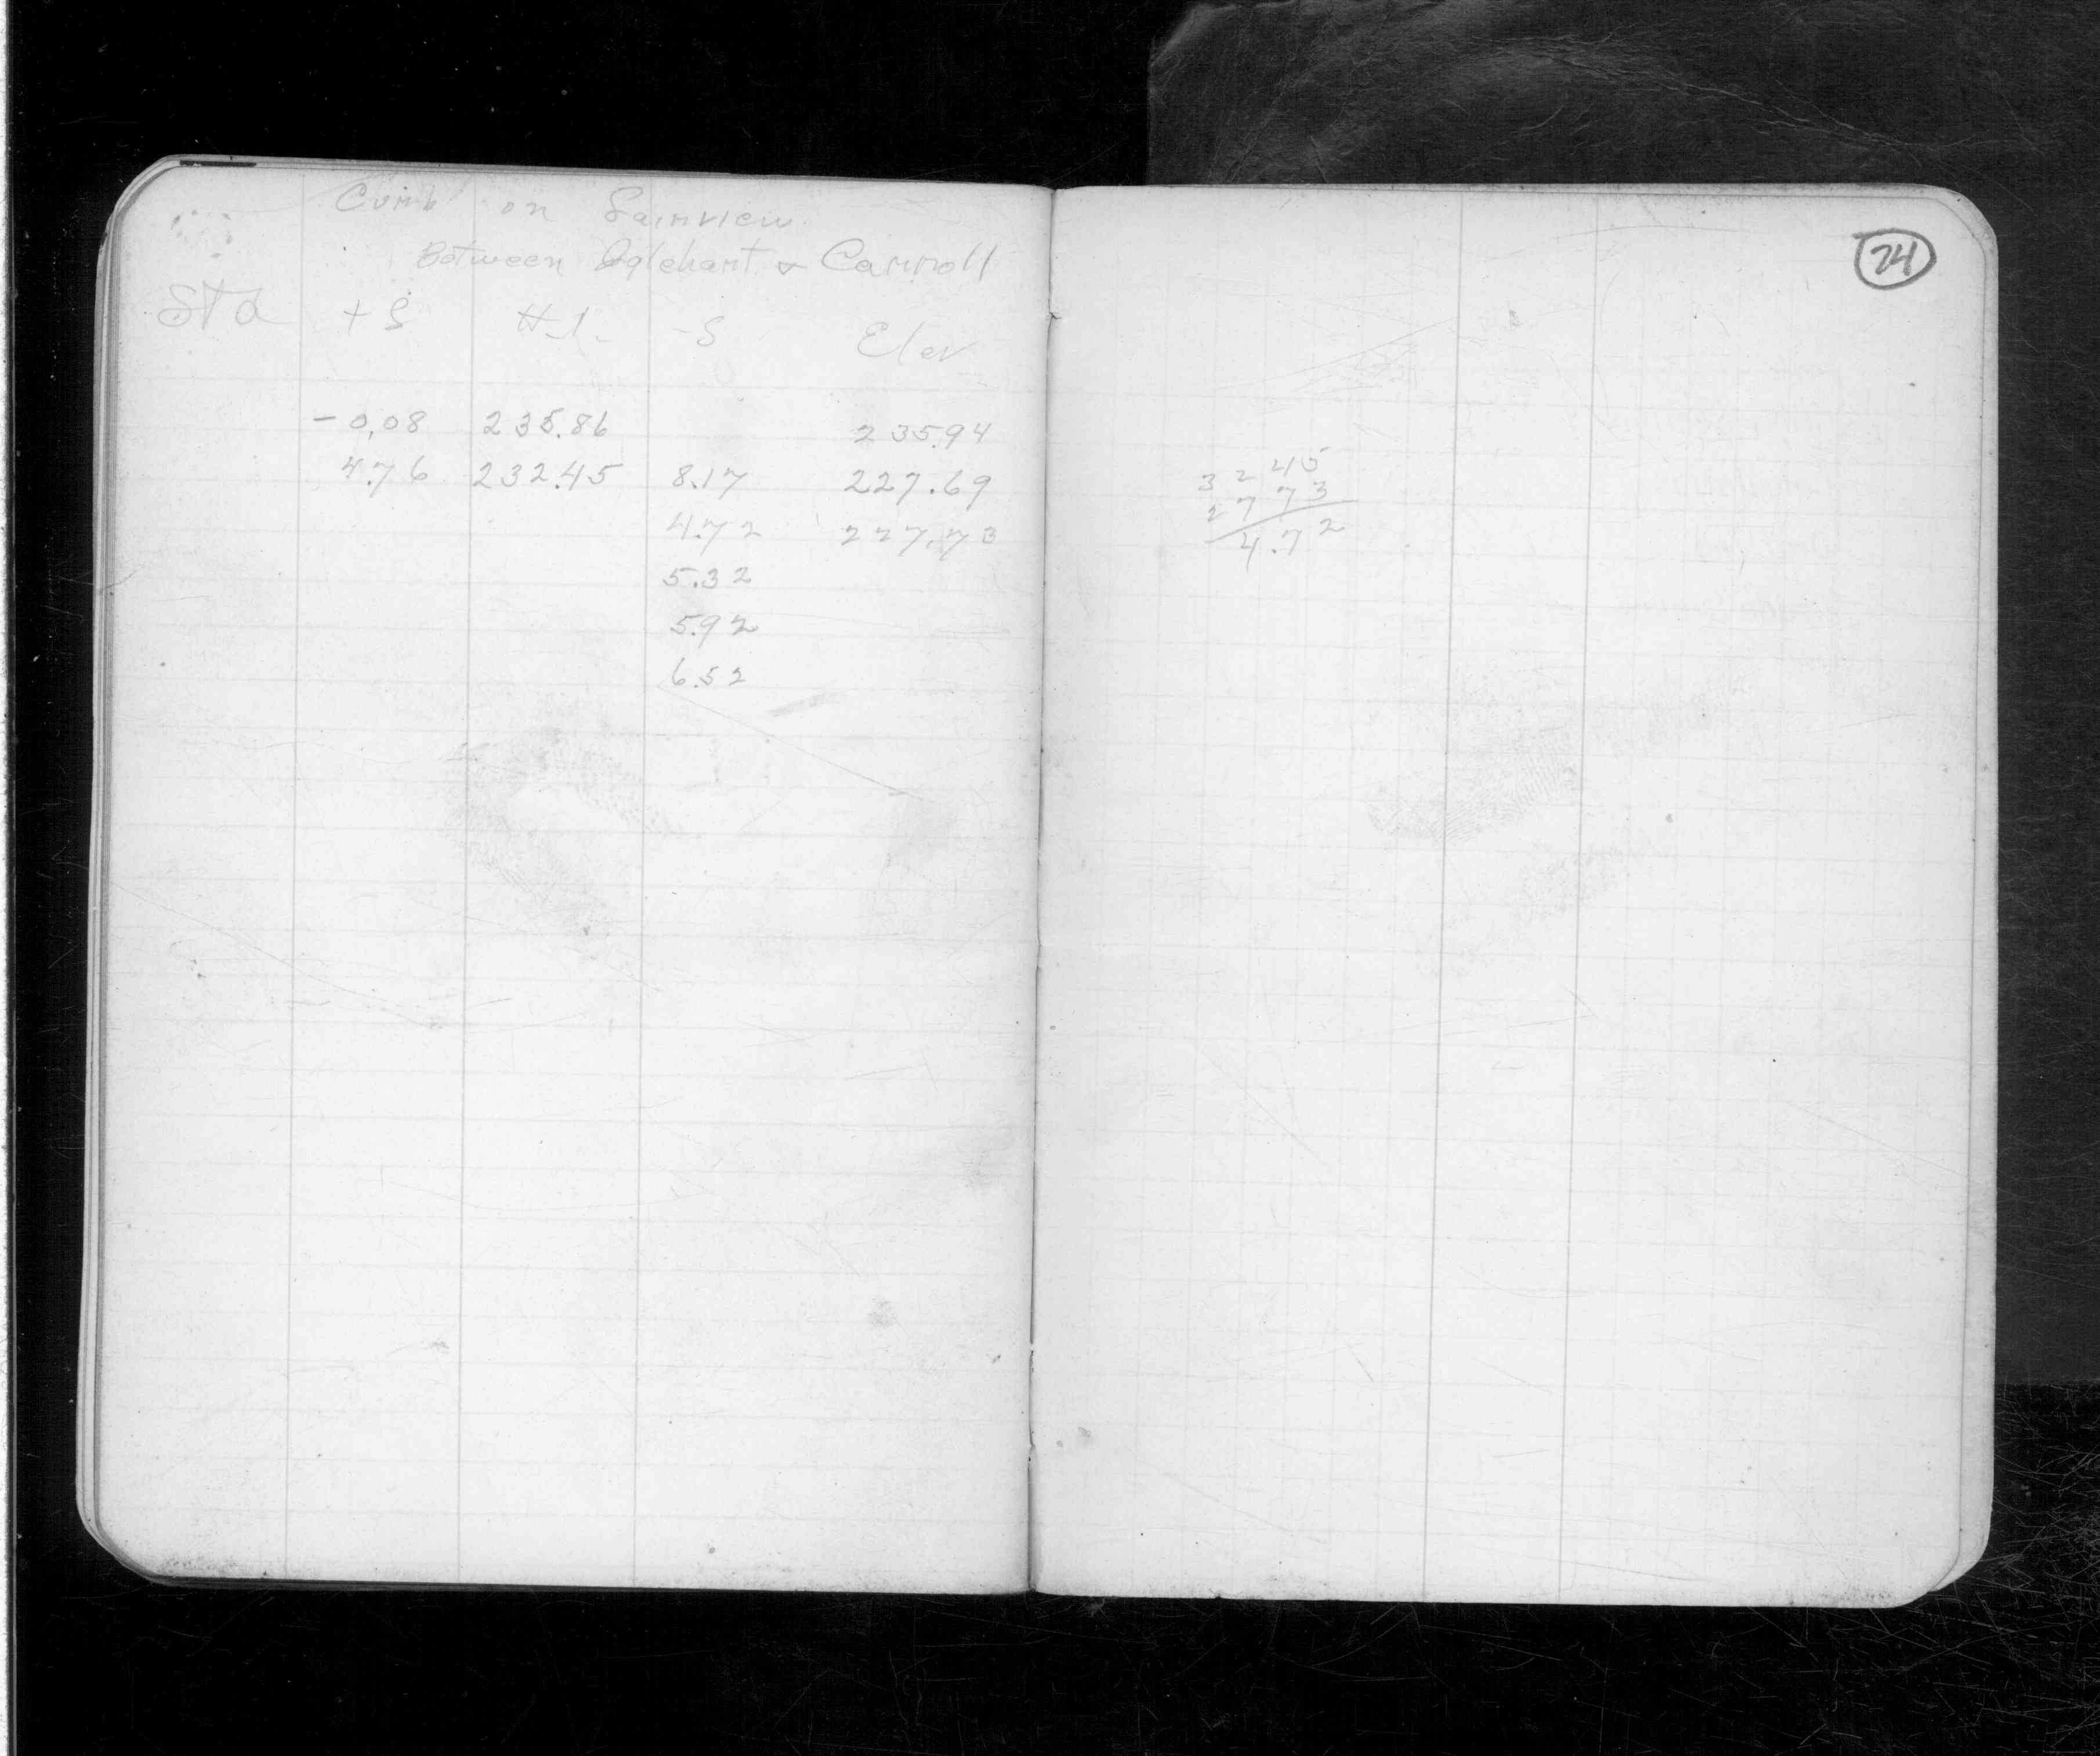 Curb on Fairview
Between Iglehart & Carroll
Sta +S H.I. -S Elev
-0.08 235.86 235.94
4.76 232.45 8.17 227.69
4.72 227.73
5.32
5.92
6.52
24
32 45
27 73
4.72